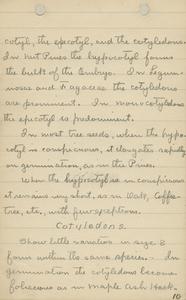 cotyl, the epicotyl, and the cotyledons.
In Nut Pines the hypocotyl forms
the bulk of the Embryo. In Legum-
nosae and Fagaceae the cotyledons
are prominent. In monocotyledons
the epicotyl is predominent.
In most tree seeds, when the hypo-
cotyl is conspicuous, it elongates rapidly
on germination, as in the Pines.
When the hypocotyl is inconspicuous
it remains very short, as in Oak, Coffee-
tree, etc., with few exceptions.
Cotyledons.
Show little variation in size &
form within the same species. In
germination the cotyledons become
foliaceous as in maple Ash, Hack-